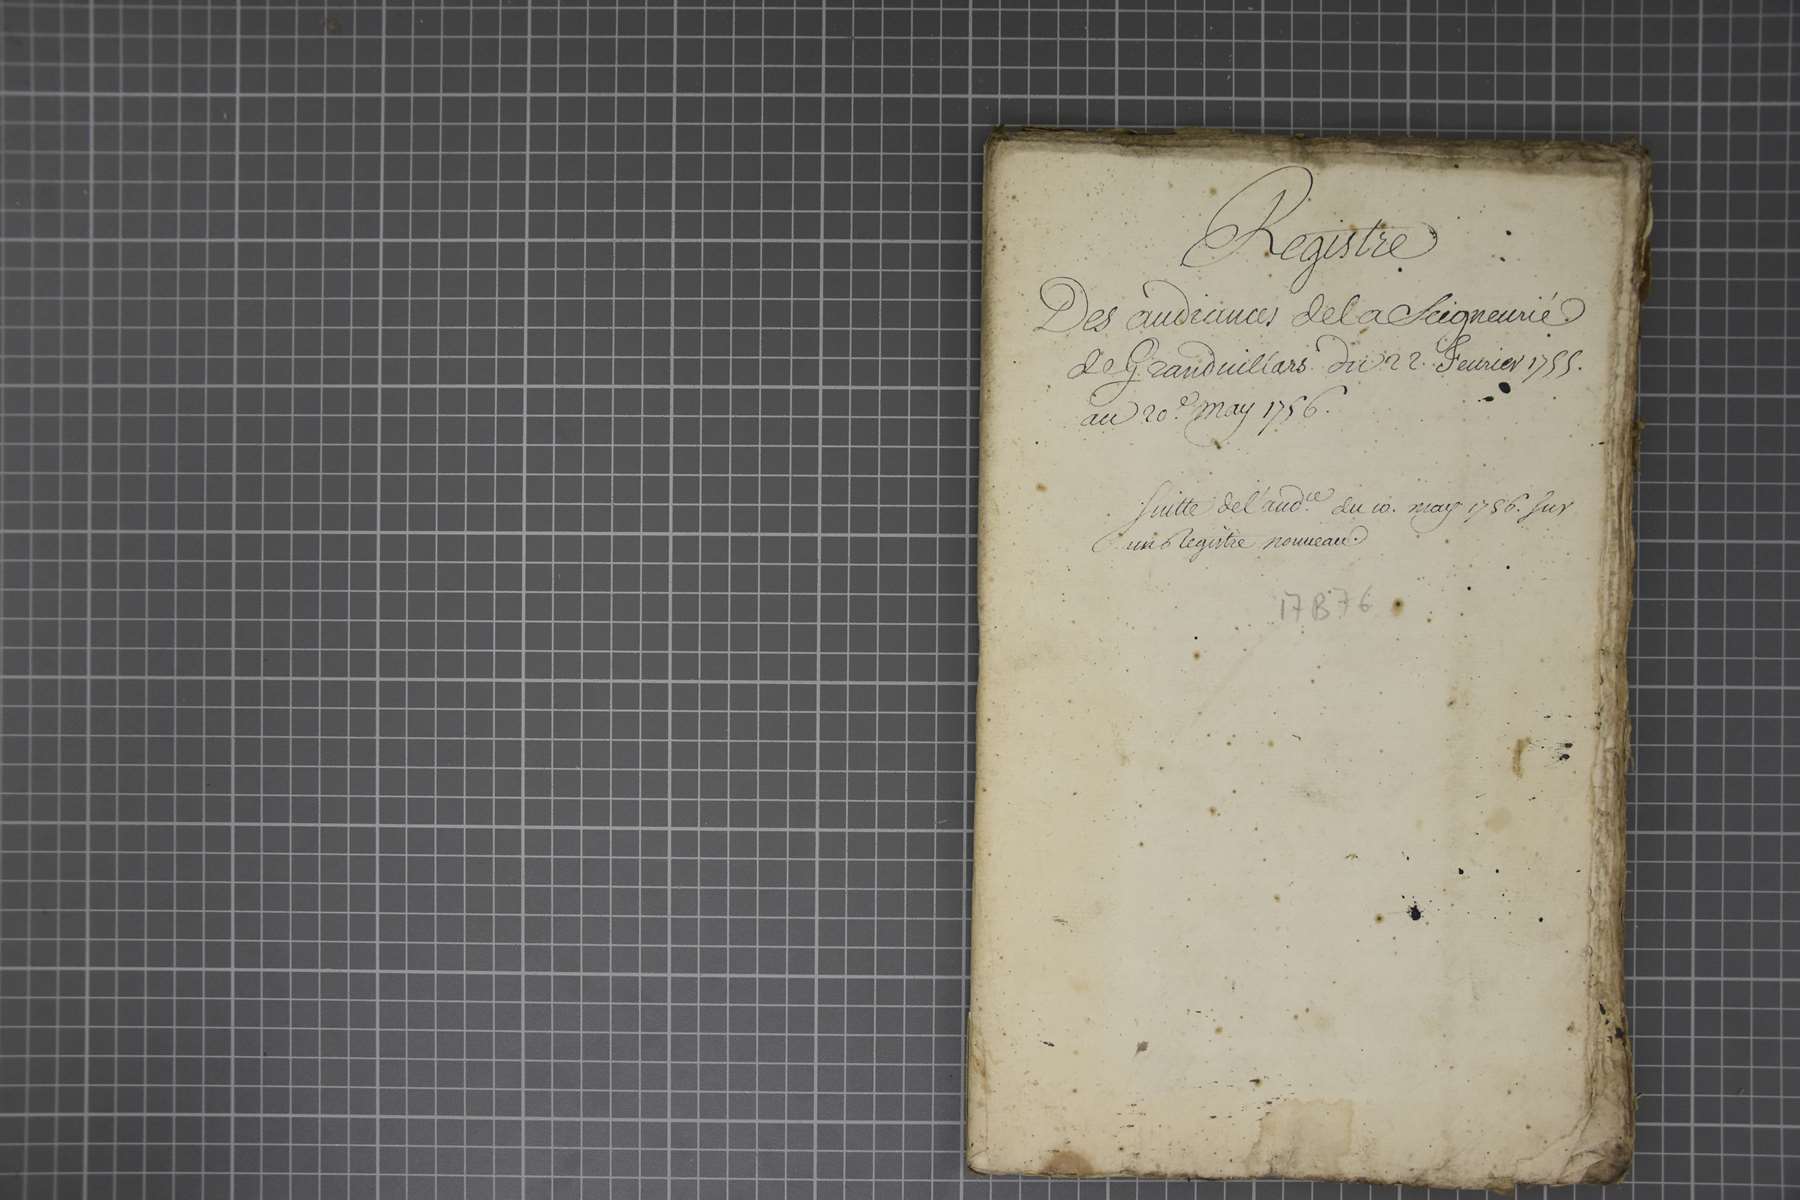 Registre
Des audiances de la Seigneurié
de Granduillars du 22. Feurier 1755.
au 20.e may 1756.
Suitte de l'aud.ce du 10. may 1756. sur
un Registre nouueau.
17 B 76